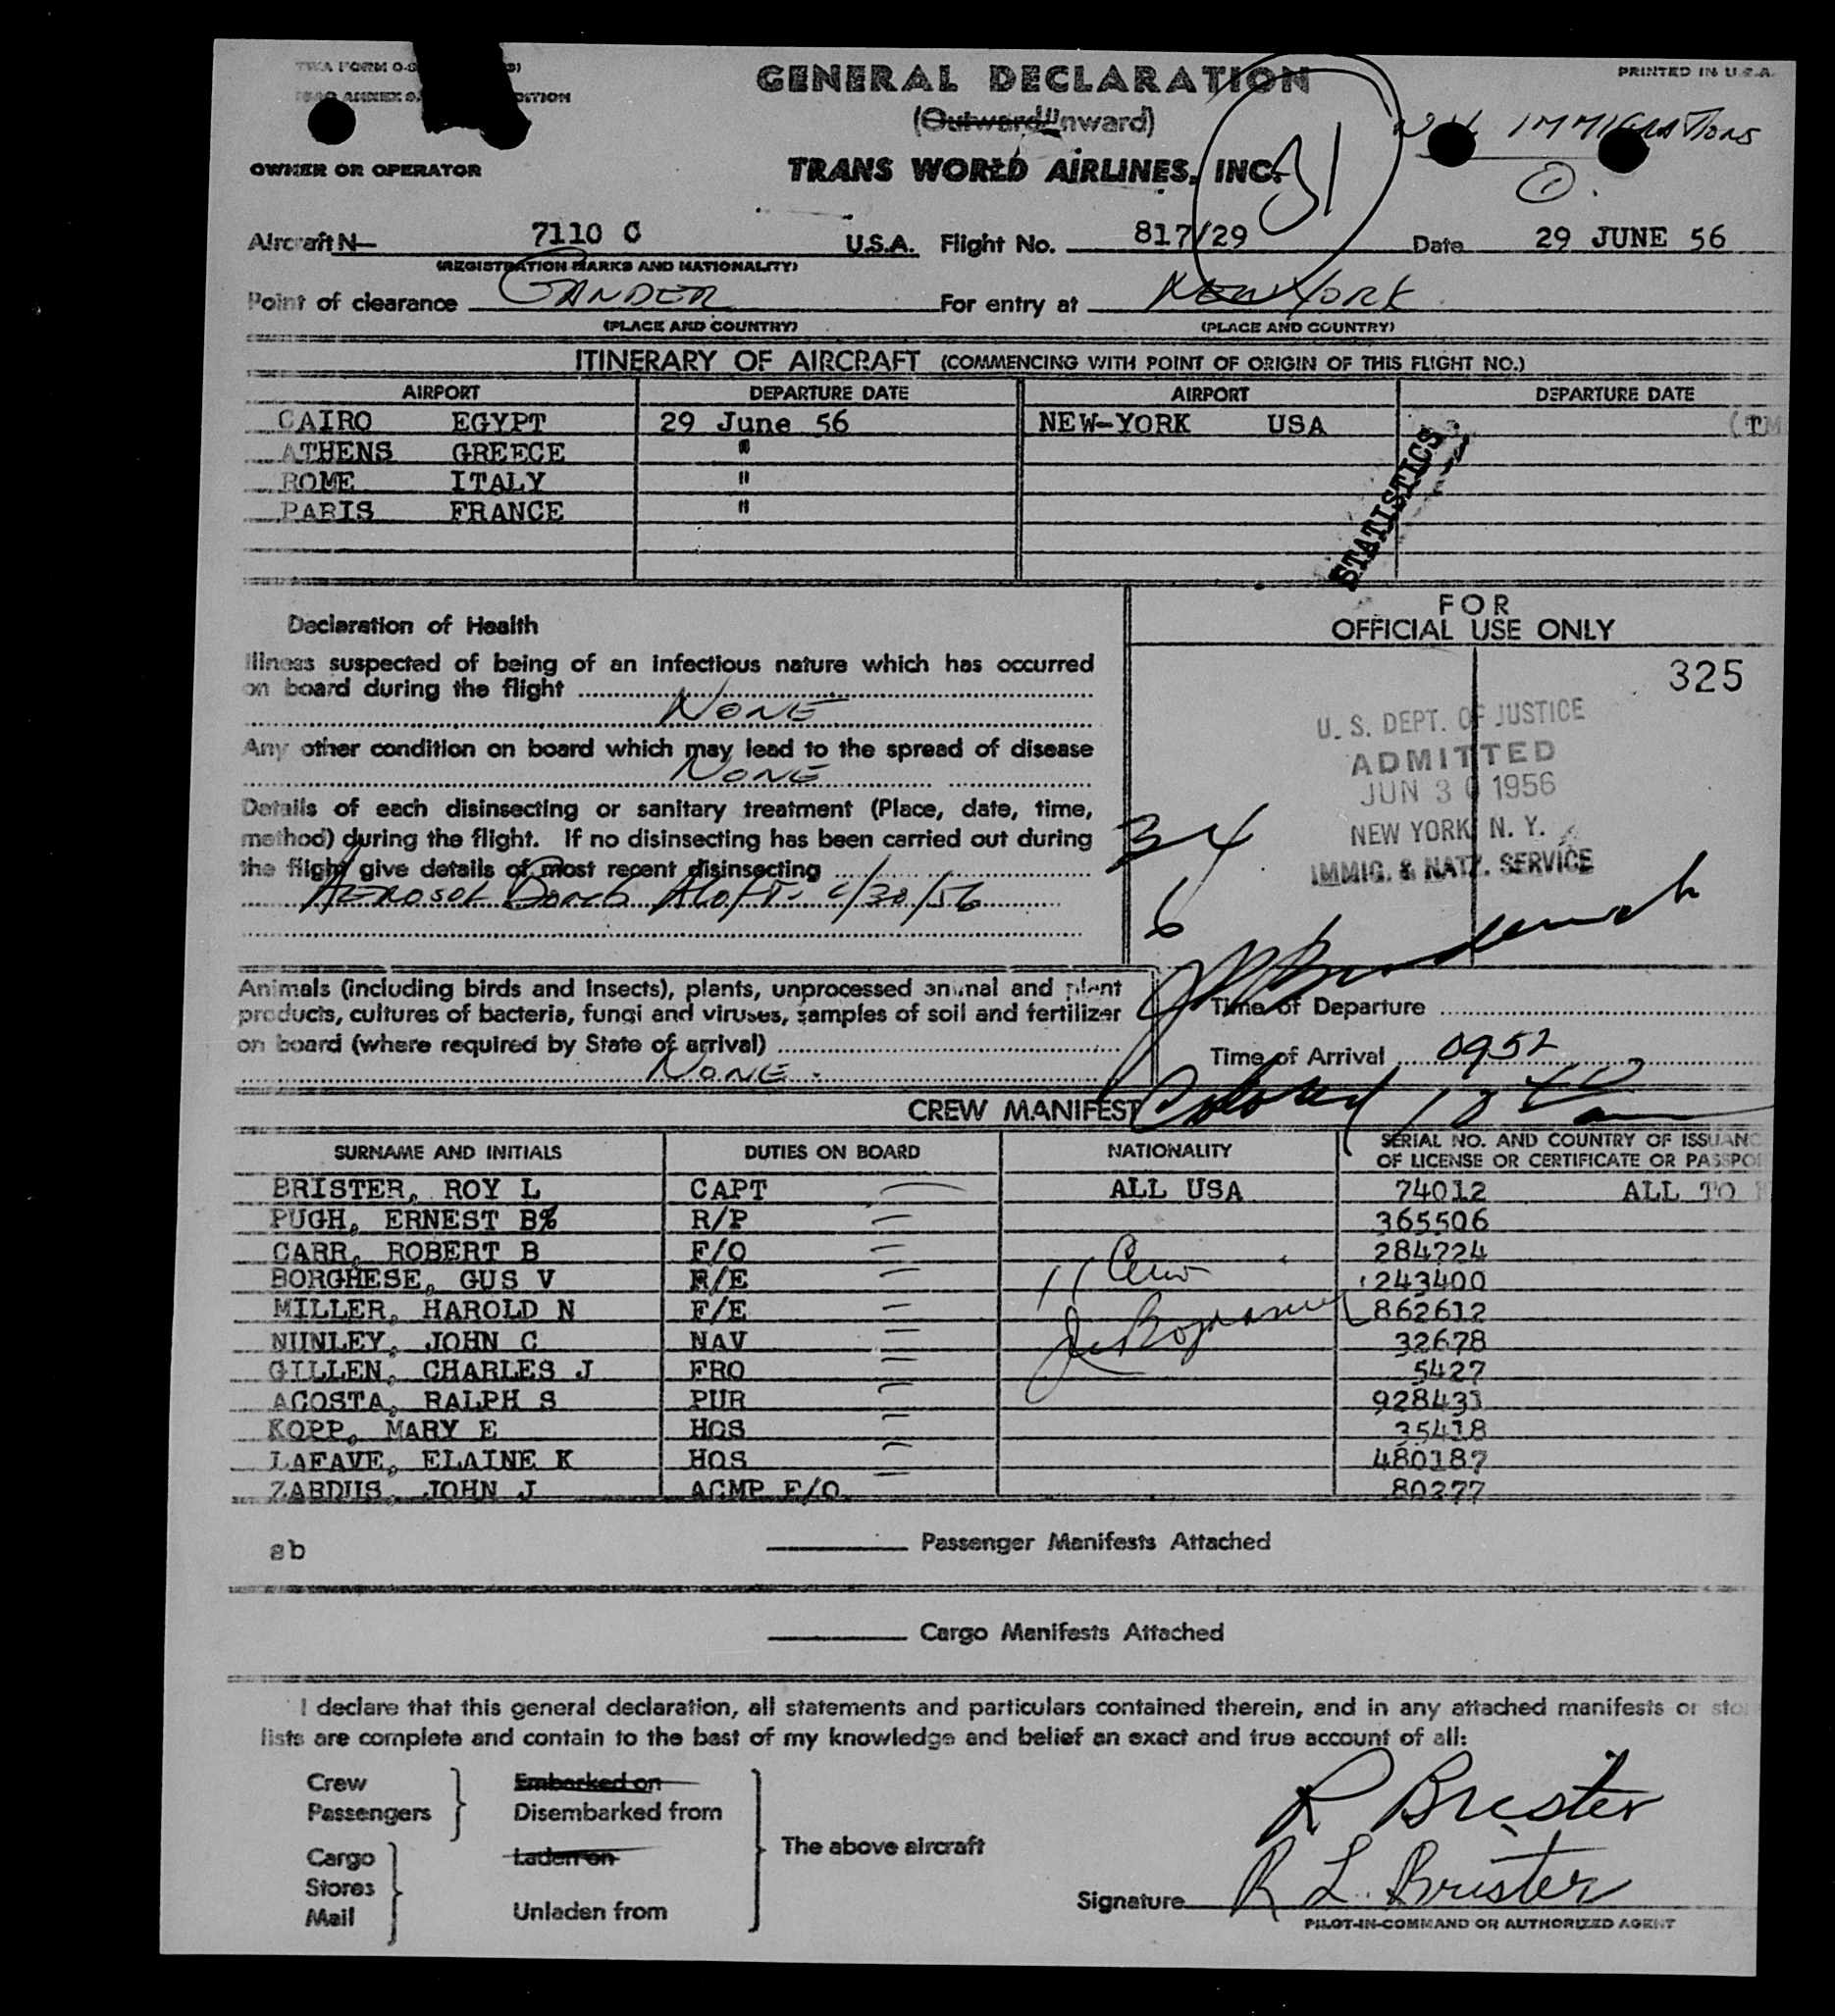 TWA FORM O-
GENERAL DECLARATION
PRINTED IN U.S.A.
ANNEX 9. DITION
(Outward/Inward)
IMMIGRATIONS
31
OWNER OR OPERATOR
TRANS WORLD AIRLINES, INC.
1
Aircraft N— 7110 C U.S.A. Flight No. 817/29 Date 29 JUNE 56
(REGISTRATION MARKS AND NATIONALITY)
Point of clearance GANDER For entry at NEW YORK
(PLACE AND COUNTRY) (PLACE AND COUNTRY)
ITINERARY OF AIRCRAFT (COMMENCING WITH POINT OF ORIGIN OF THIS FLIGHT NO.)
AIRPORT DEPARTURE DATE AIRPORT DEPARTURE DATE
CAIRO EGYPT 29 June 56 NEW-YORK USA (TM
ATHENS GREECE "
ROME ITALY "
PARIS FRANCE "
STATISTICS
Declaration of Health
Illness suspected of being of an infectious nature which has occurred
on board during the flight
NONE
Any other condition on board which may lead to the spread of disease
NONE
Details of each disinsecting or sanitary treatment (Place, date, time,
method) during the flight. If no disinsecting has been carried out during
the flight give details of most recent disinsecting
AEROSOL Bomb Aloft 6/30/56
FOR
OFFICIAL USE ONLY
325
U. S. DEPT. OF JUSTICE
ADMITTED
JUN 30 1956
NEW YORK, N. Y.
IMMIG. & NATZ. SERVICE
34
6
Animals (including birds and insects), plants, unprocessed animal and plant
products, cultures of bacteria, fungi and viruses, samples of soil and fertilizer
on board (where required by State of arrival)
NONE -
Time of Departure
Time of Arrival 0952
CREW MANIFEST
SURNAME AND INITIALS DUTIES ON BOARD NATIONALITY SERIAL NO. AND COUNTRY OF ISSUANC
OF LICENSE OR CERTIFICATE OR PASSPO
BRISTER, ROY L CAPT ALL USA 74012 ALL TO
PUGH, ERNEST B% R/P 365506
CARR, ROBERT B F/O 284724
BORGHESE, GUS V R/E 1243400
MILLER, HAROLD N F/E 862612
NUNLEY, JOHN C NAV 32678
GILLEN, CHARLES J FRO 5427
ACOSTA, RALPH S PUR 928431
KOPP, MARY E HOS 35418
LAFAVE, ELAINE K HOS 480187
ZARDUS, JOHN J ACMP F/O 80277
11 Crew
ab
Passenger Manifests Attached
Cargo Manifests Attached
I declare that this general declaration, all statements and particulars contained therein, and in any attached manifests or sto
lists are complete and contain to the best of my knowledge and belief an exact and true account of all:
Crew Embarked on
Passengers Disembarked from
The above aircraft
Cargo Laden on
Stores
Mail Unladen from
R Brister
Signature R L. Brister
PILOT-IN-COMMAND OR AUTHORIZED AGENT